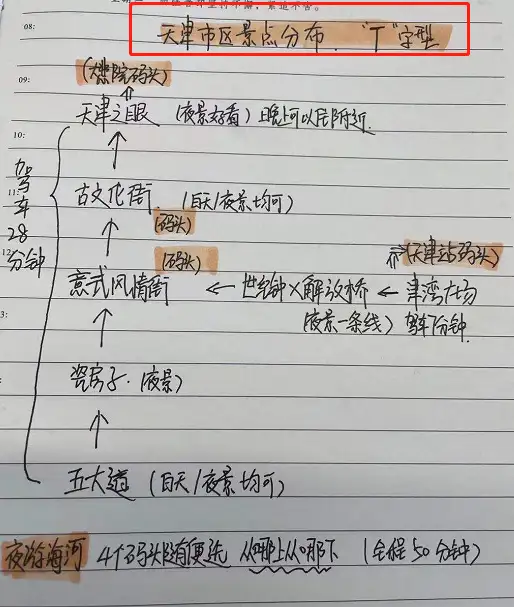 08:
天津市区景点分布. "T"字型
(大悲院码头)
09:
天津之眼 (夜景好看) 晚上可以居附近.
10:
驾车28分钟
11:
古文化街. (白天/夜景均可)
(码头)
12
(码头) (天津站码头)
意式风情街 ← 世纪钟×解放桥 ← 津湾广场
(夜景一条线) 驾车7分钟.
3:
瓷房子. (夜景)
五大道 (白天/夜景均可)
夜游海河 4个码头随便选 从哪上从哪下 (全程50分钟)